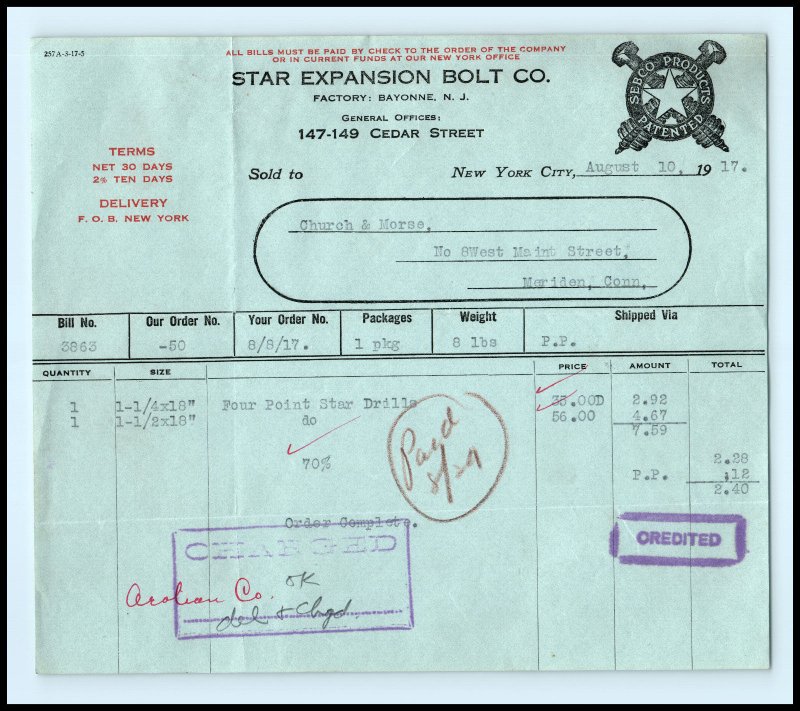 257A-3-17-5
ALL BILLS MUST BE PAID BY CHECK TO THE ORDER OF THE COMPANY
OR IN CURRENT FUNDS AT OUR NEW YORK OFFICE
STAR EXPANSION BOLT CO.
FACTORY: BAYONNE, N. J.
GENERAL OFFICES:
147-149 CEDAR STREET
SEBCO PRODUCTS
PATENTED
TERMS
NET 30 DAYS
2% TEN DAYS
DELIVERY
F. O. B. NEW YORK
Sold to NEW YORK CITY, August 10, 1917.
Church & Morse,
No 8West Maint Street,
Meriden, Conn.
Bill No. Our Order No. Your Order No. Packages Weight Shipped Via
3863 -50 8/8/17. 1 pkg 8 lbs P.P.
QUANTITY SIZE PRICE AMOUNT TOTAL
1 1-1/4x18" Four Point Star Drills 35.00D 2.92
1 1-1/2x18" do 56.00 4.67
7.59
70% 2.28
P.P. .12
2.40
Paid
8/29
Order Complete.
CHARGED
CREDITED
Aeolian Co. OK
del & Chgd.